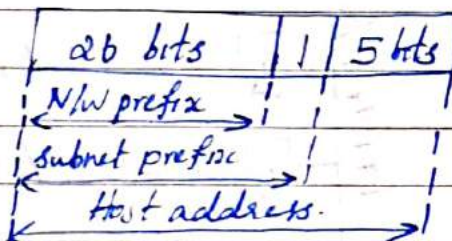 26 bits 1 5 bits
N/W prefix
subnet prefix
Host address.